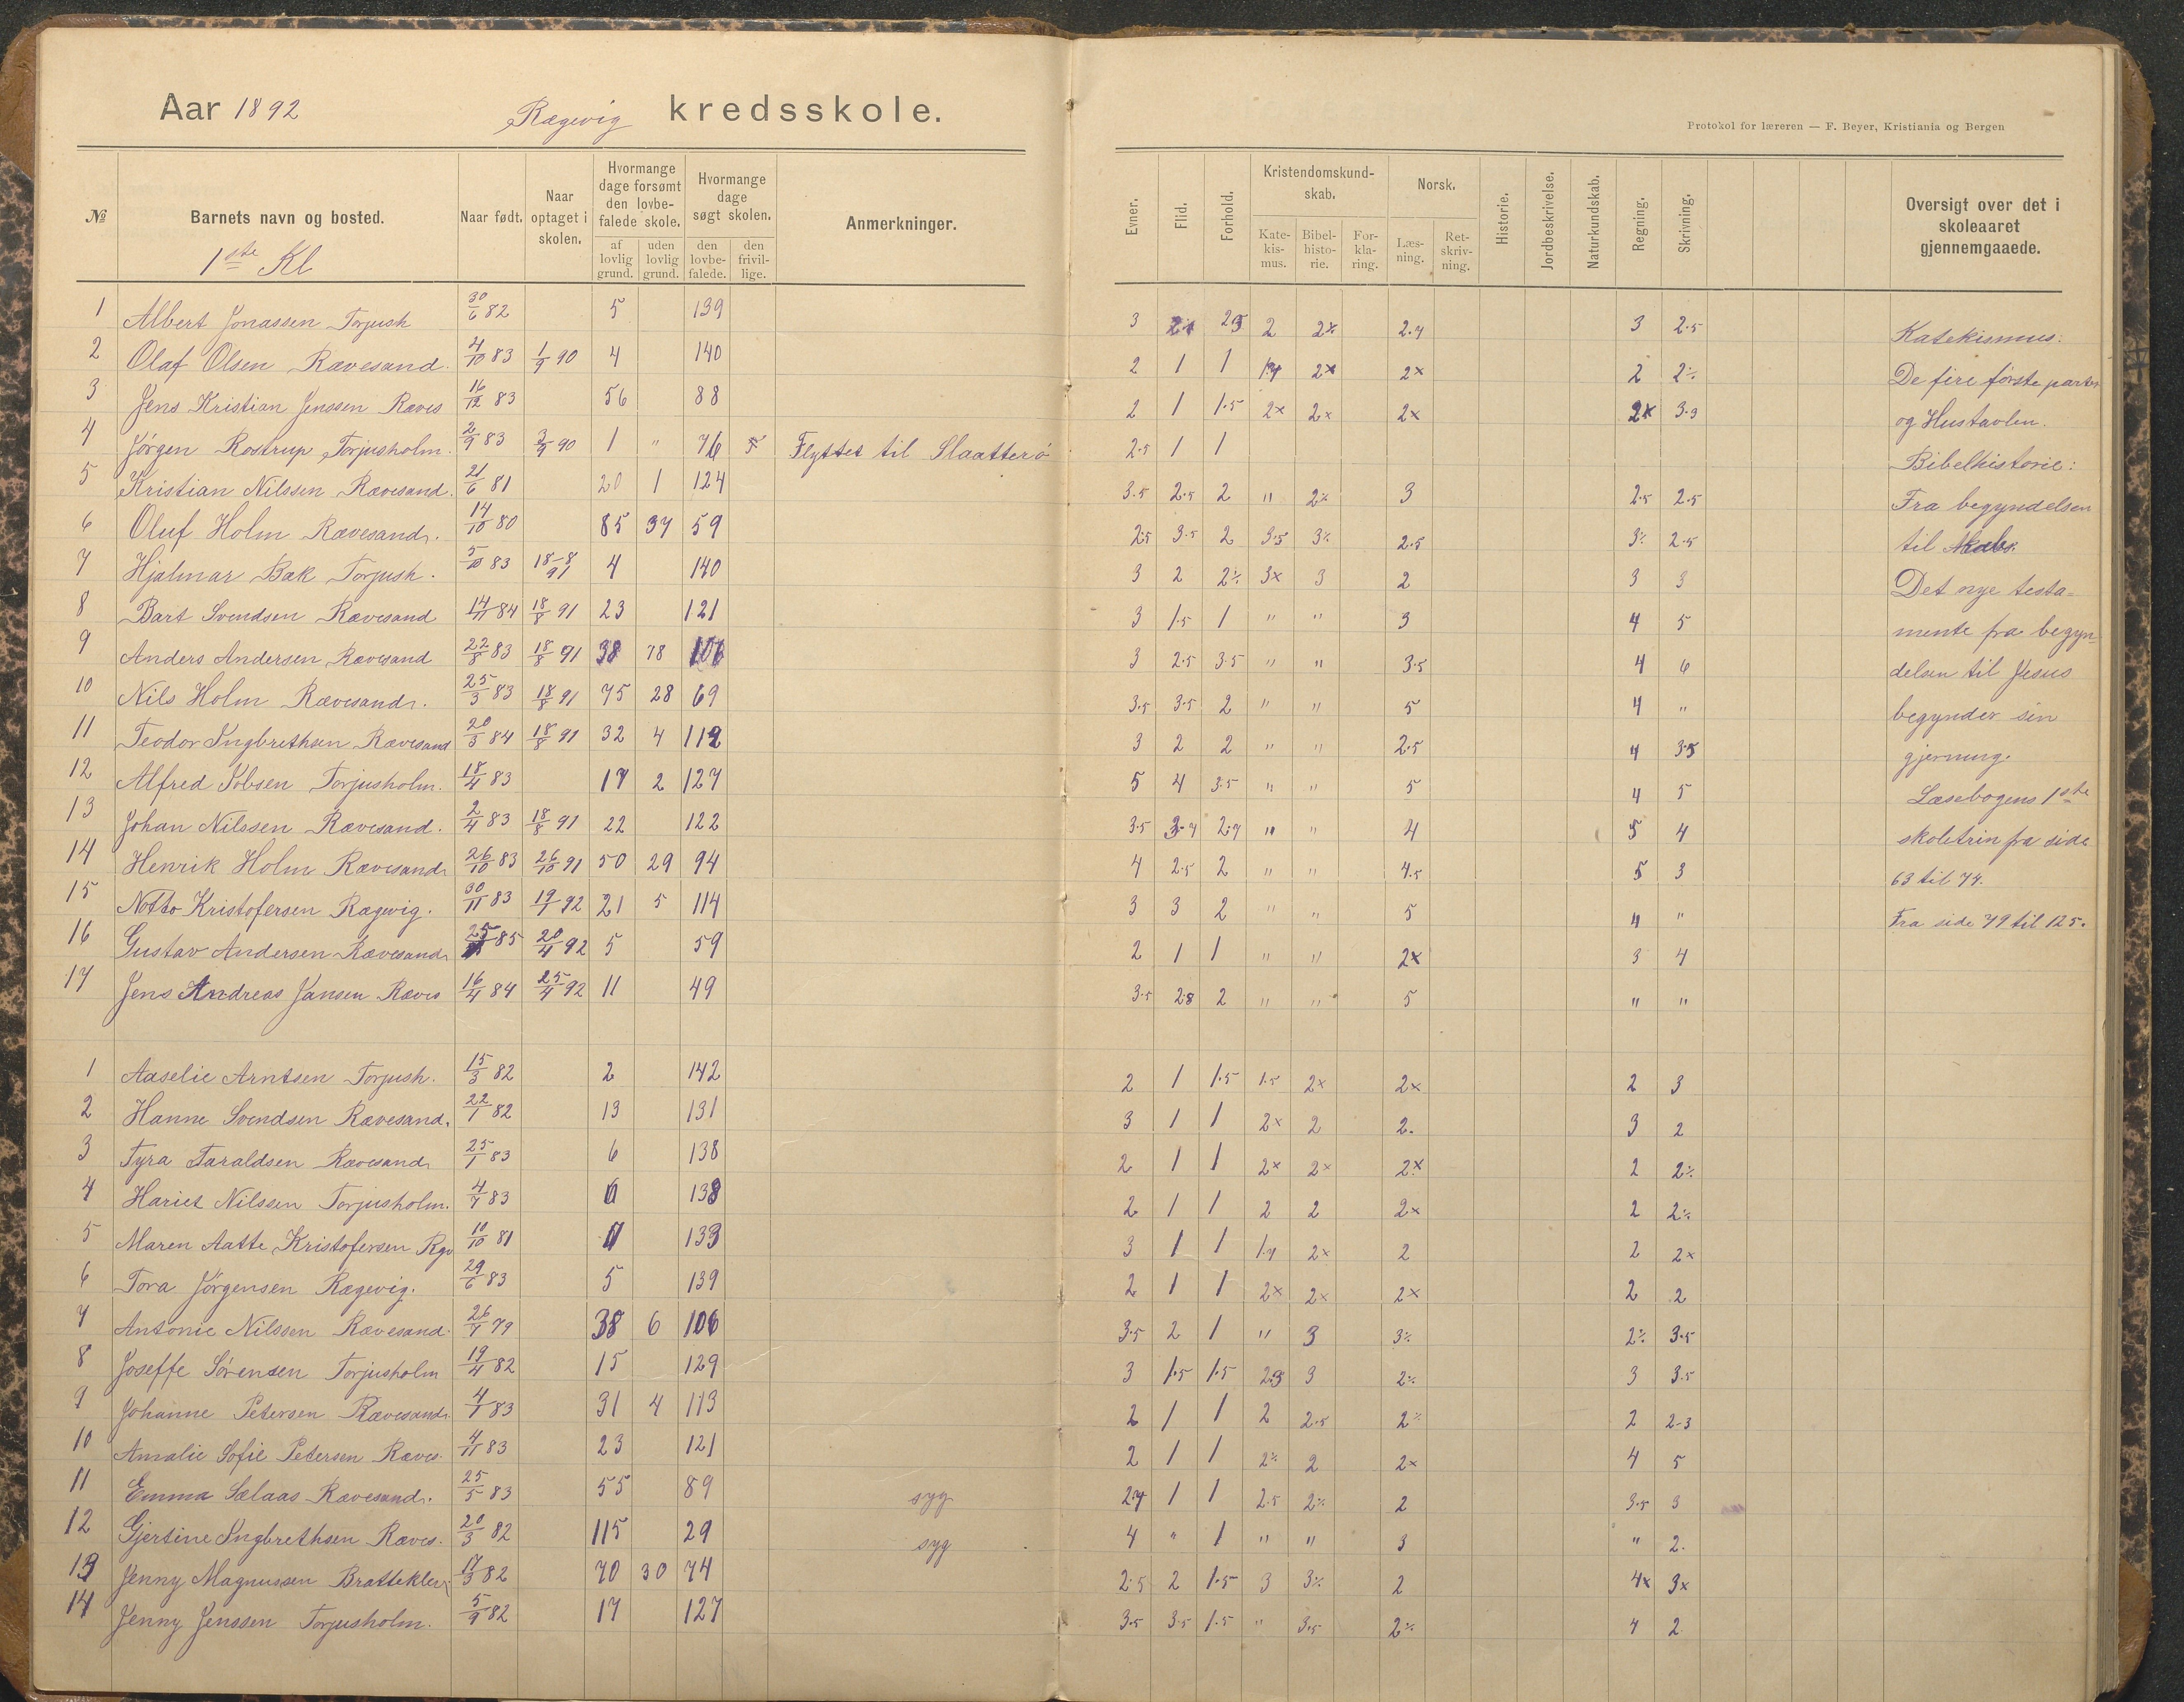 Aar 1892 Rægevig kredsskole.
Protokol for læreren — F. Beyer, Kristiania og Bergen
№ Barnets navn og bosted. Naar født. Naar optaget i skolen. Hvormange dage forsømt den lovbefalede skole. af lovlig grund. uden lovlig grund. Hvormange dage søgt skolen. den lovbefalede. den frivillige. Anmerkninger. Evner. Flid. Forhold. Kristendomskundskab. Katekismus. Bibelhistorie. Forklaring. Norsk. Læsning. Retskrivning. Historie. Jordbeskrivelse. Naturkundskab. Regning. Skrivning. Oversigt over det i skoleaaret gjennemgaaede.
1ste Kl
1 Albert Jonassen Torjush 30/6 82 5 139 3 2 2 2× 3 2.5 Katekismus:
2 Olaf Olsen Rævesand. 4/10 83 1/9 90 4 140 2 1 1 2× 2× 2 2% De fire første parter
3 Jens Kristian Jenssen Ræves 16/12 83 56 88 2 1 1.5 2× 2× 2× 2× 3.3 og Hustavlen.
4 Jørgen Rostrup Torjusholm. 2/9 83 3/9 90 1 " 76 5 Flyttet til Slaatterö 2.5 1 1 Bibelhistorie:
5 Kristian Nilssen Rævesand. 21/6 81 20 1 124 3.5 2.5 2 " 2% 3 2.5 2.5 Fra begyndelsen
6 Oluf Holm Rævesand. 14/10 80 85 37 59 2.5 3.5 2 3.5 3% 2.5 3% 2.5 til
7 Hjalmar Bak Torjush. 5/10 83 18-8/91 4 140 3 2 2% 3× 3 2 3 3 Det nye testa=
8 Bart Svendsen Rævesand 14/11 84 18/8 91 23 121 3 1.5 1 " " 3 4 5 mente fra begyn
9 Anders Andersen Rævesand 22/8 83 18/8 91 38 78 106 3 2.5 3.5 " " 3.5 4 6 delsen til Jesus
10 Nils Holm Rævesand. 25/3 83 18/8 91 75 28 69 3.5 3.5 2 " " 5 4 " begynder sin
11 Teodor Ingbrethsen Rævesand 20/3 84 18/8 91 32 4 112 3 2 2 " " 2.5 4 3.5 gjerning.
12 Alfred Iobsen Torjusholm. 18/4 83 17 2 127 5 4 3.5 " " 5 4 5 Læsebogens 1ste
13 Johan Nilssen Rævesand. 2/4 83 18/8 91 22 122 3.5 3.7 2.7 " " 4 5 4 skoletrin fra side
14 Henrik Holm Rævesand 26/10 83 26/10 91 50 29 94 4 2.5 2 " " 4.5 5 3 63 til 74.
15 Notto Kristofersen Rægevig. 30/11 83 19/1 92 21 5 114 3 3 2 " " 5 4 " Fra side 79 til 125.
16 Gustav Andersen Rævesand 85 20/4 92 5 59 2 1 1 " " 2× 3 4
17 Jens Andreas Jansen Ræves 16/4 84 25/4 92 11 49 3.5 2.8 2 " " 5 " "
1 Aaselie Arntsen Torjush. 15/3 82 2 142 2 1 1.5 1.5 2× 2× 2 3
2 Hanne Svendsen Rævesand. 22/1 82 13 131 3 1 1 2× 2 2. 3 2
3 Tyra Taraldsen Rævesand 25/1 83 6 138 2 1 1 2× 2× 2× 2 2%
4 Hariet Nilssen Torjusholm. 4/7 83 6 138 2 1 1 2 2 2× 2 2%
5 Maren Aatte Kristofersen Rgv 10/10 81 11 133 3 1 1 1.7 2× 2 2 2×
6 Tora Jörgensen Rægevig. 29/6 83 5 139 2 1 1 2× 2× 2× 2 2
7 Antonie Nilssen Rævesand. 26/7 79 38 6 106 3.5 2 1 " 3 3% 2% 3.5
8 Joseffe Sörensen Torjusholm 19/4 82 15 129 3 1.5 1.5 2.3 3 2% 3 3.5
9 Johanne Petersen Rævesand. 4/1 83 31 4 113 2 1 1 2 2.5 2% 2 2-3
10 Amalie Sofie Petersen Ræves. 4/11 83 23 121 2 1 1 2% 2 2× 4 5
11 Emma Sælaas Rævesand. 25/5 83 55 89 syg 2.7 1 1 2.5 2% 2 3.5 3
12 Gjertine Ingbrethsen Ræves. 20/3 82 115 29 syg 4 " 1 " " 3 " 2.
13 Jenny Magnussen Bratteklev 17/3 82 70 30 74 2.5 2 1.5 3 3% 2 4× 3×
14 Jenny Jenssen Torjusholm. 5/9 82 17 127 3.5 3.5 1.5 " 3.5 2% 4 2